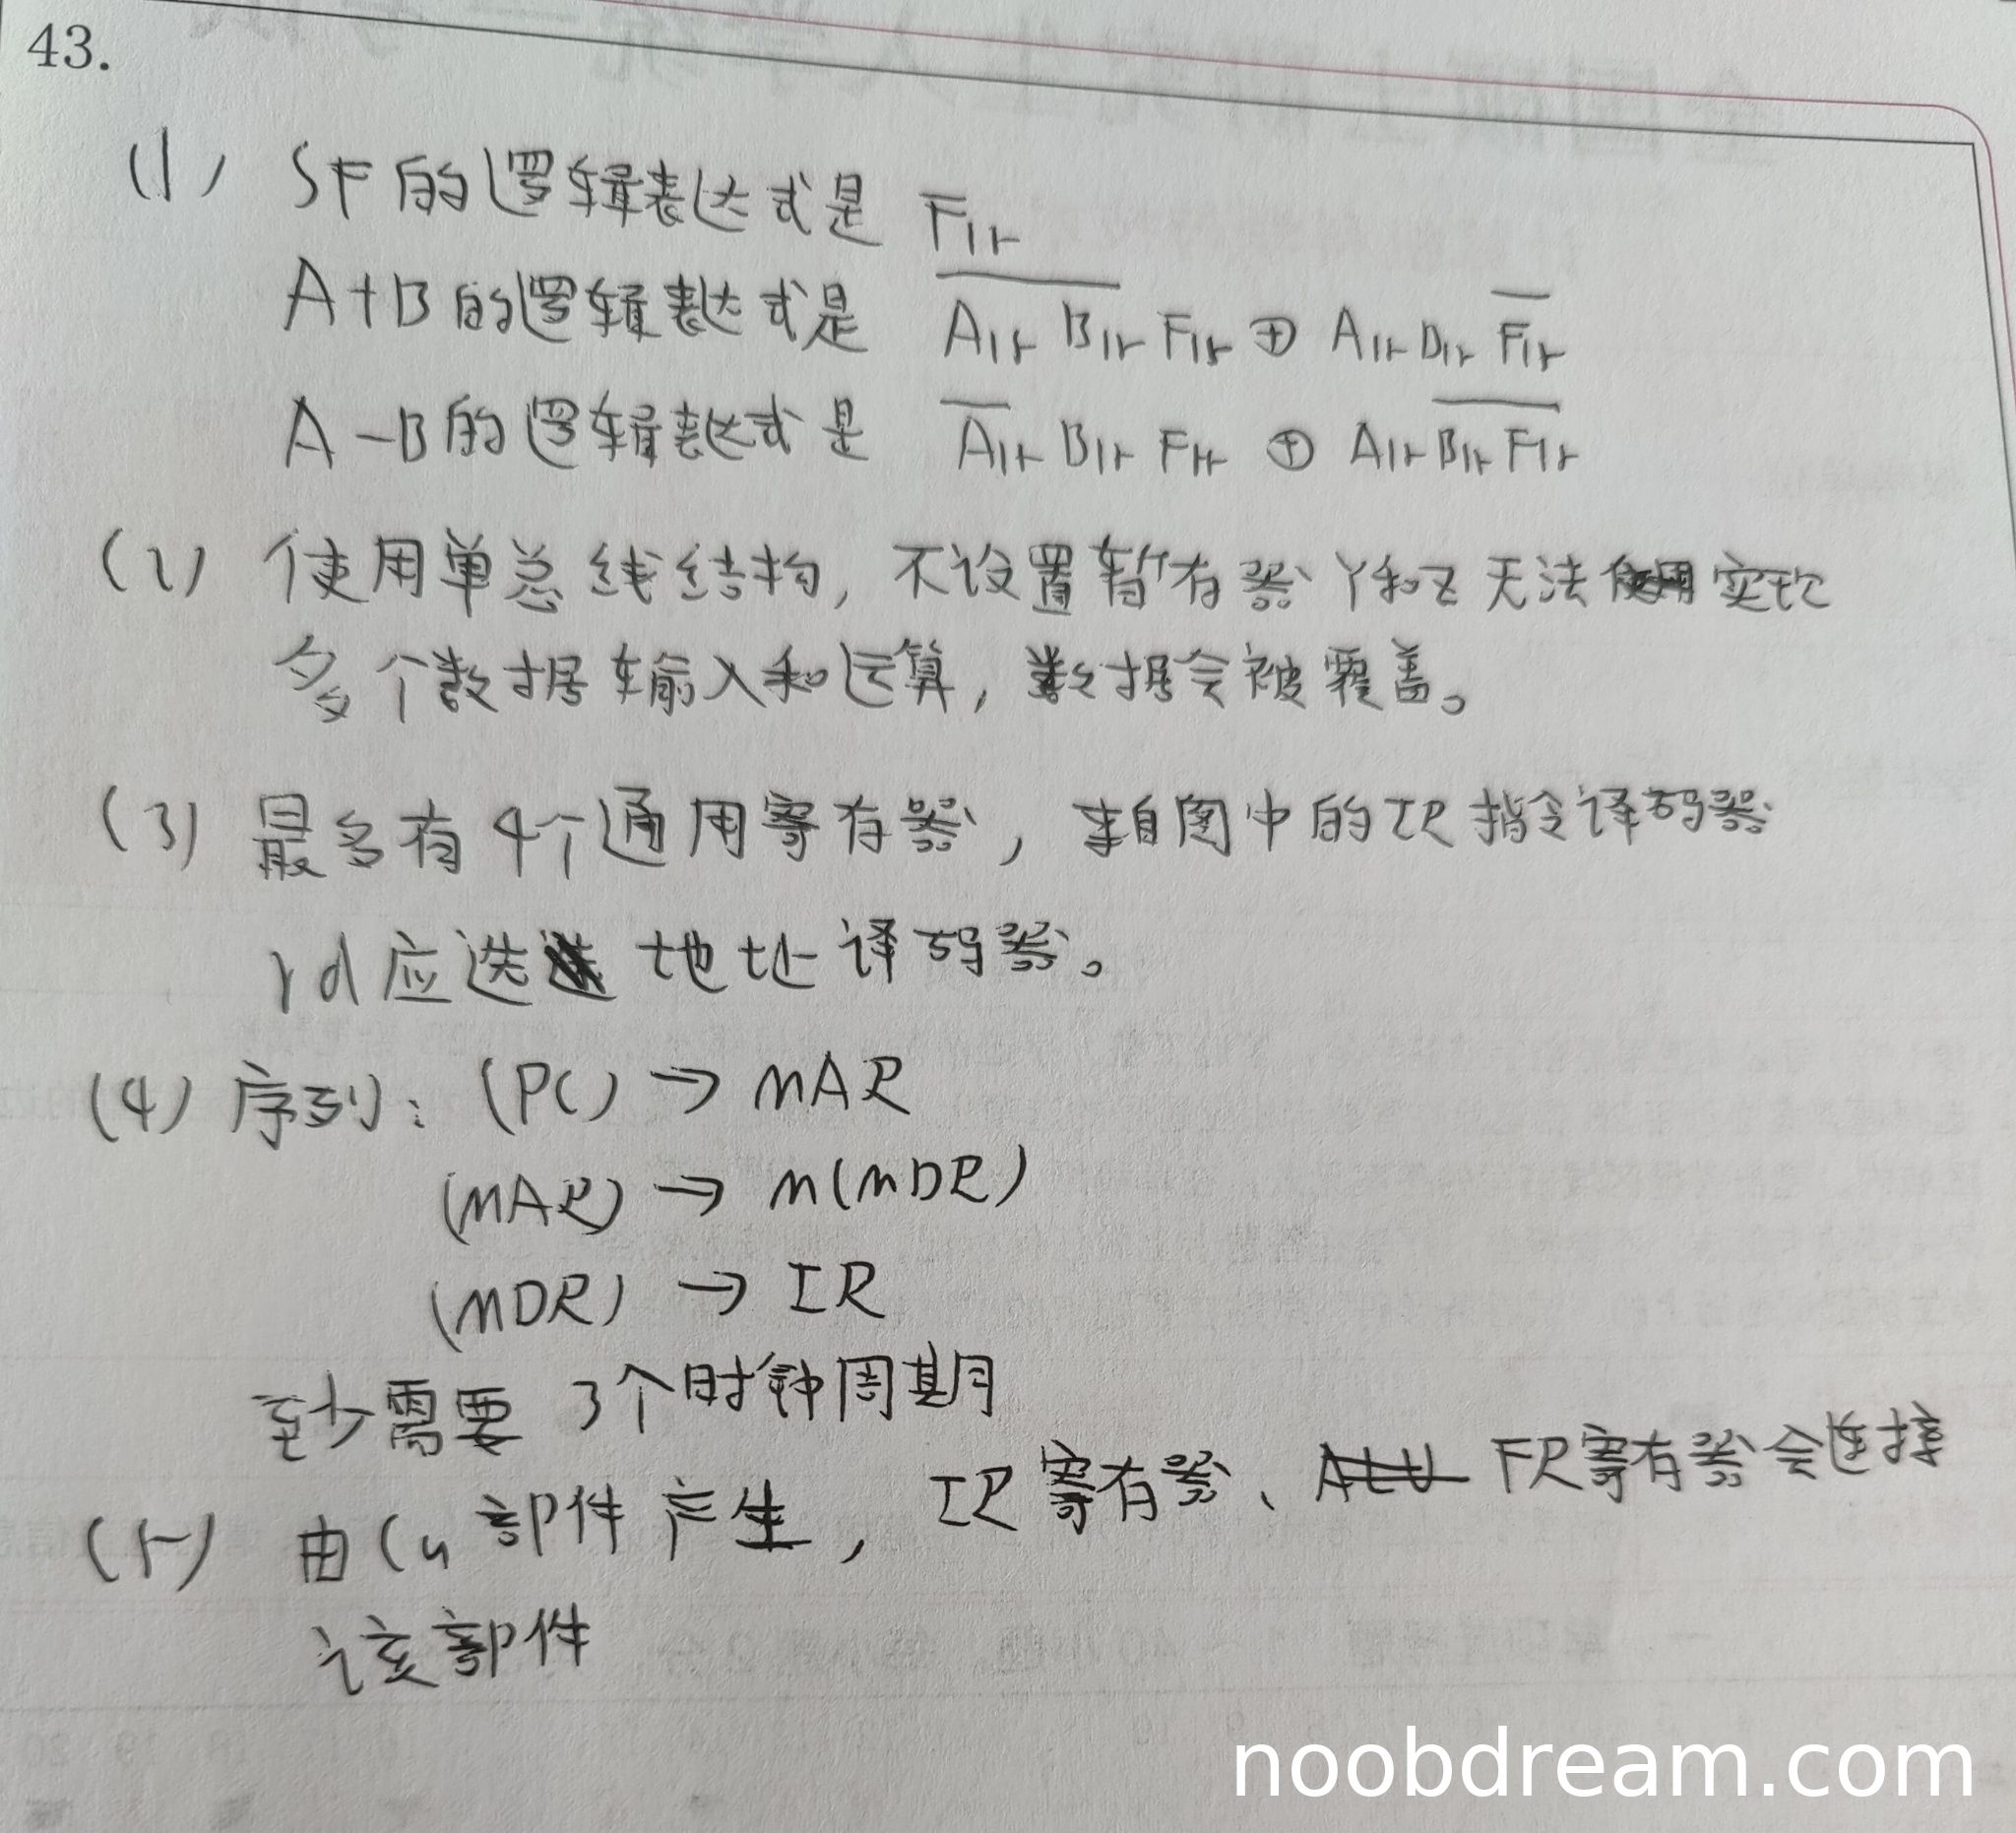 43.
(1) SF的逻辑表达式是 F̅₁₅
A+B的逻辑表达式是 A̅₁₅ B̅₁₅ F₁₅ ⊕ A₁₅ B₁₅ F̅₁₅
A-B的逻辑表达式是 A̅₁₅ B₁₅ F₁₅ ⊕ A₁₅ B̅₁₅ F̅₁₅
(2) 使用单总线结构, 不设置暂存器Y和Z无法实现
多个数据输入和运算, 数据会被覆盖。
(3) 最多有4个通用寄存器, 来自图中的IR指令译码器
rd应选 地址译码器。
(4) 序列: (PC) → MAR
(MAR) → M(MDR)
(MDR) → IR
至少需要 3个时钟周期
(5) 由Cu部件产生, IR寄存器、FR寄存器会连接
该部件
noobdream.com